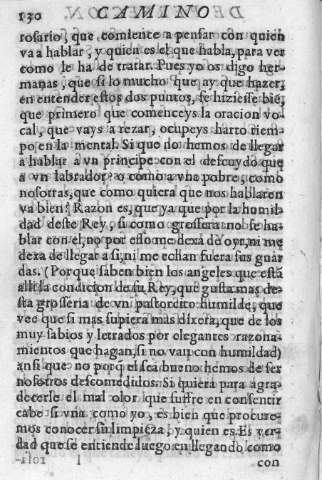 130 CAMINO
rosario, que comience a pensar con quien
va a hablar, y quien es el que habla, para ver
como le ha de tratar. Pues yo os digo her-
manas, que si lo mucho que ay que hazer,
en entender estos dos puntos, se hiziesse bié,
que primero que comenceys la oracion vo-
cal, que vays a rezar, ocupeys harto tiem-
po en la mental. Si que no hemos de llegar
a hablar a vn principe con el descuydo que
a vn labrador, o como a vna pobre, como
nosotras, que como quiera que nos hablaren
va bien. Razon es, que ya que por la humil-
dad deste Rey, si como grossera no se ha-
blar con el, no por esso me dexa de oyr, ni me
dexa de llegar a si, ni me echan fuera sus guar
das. (Porque saben bien los angeles que está
alli la condicion de su Rey, que gusta mas de-
sta grosseria de vn pastorcito humilde, que
vee que si mas supiera mas dixera, que de los
muy sabios y letrados por elegantes razona-
mientos que hagan, si no van con humildad)
ansi que no porq̃ el sea bueno hemos de ser
nosotros descomedidos. Si quiera para agra-
decerle el mal olor que suffre en consentir
cabe si vna como yo, es bien que procure-
mos conocer su limpieza, y quien es. Es ver-
dad que se entiende luego en llegando como
I con